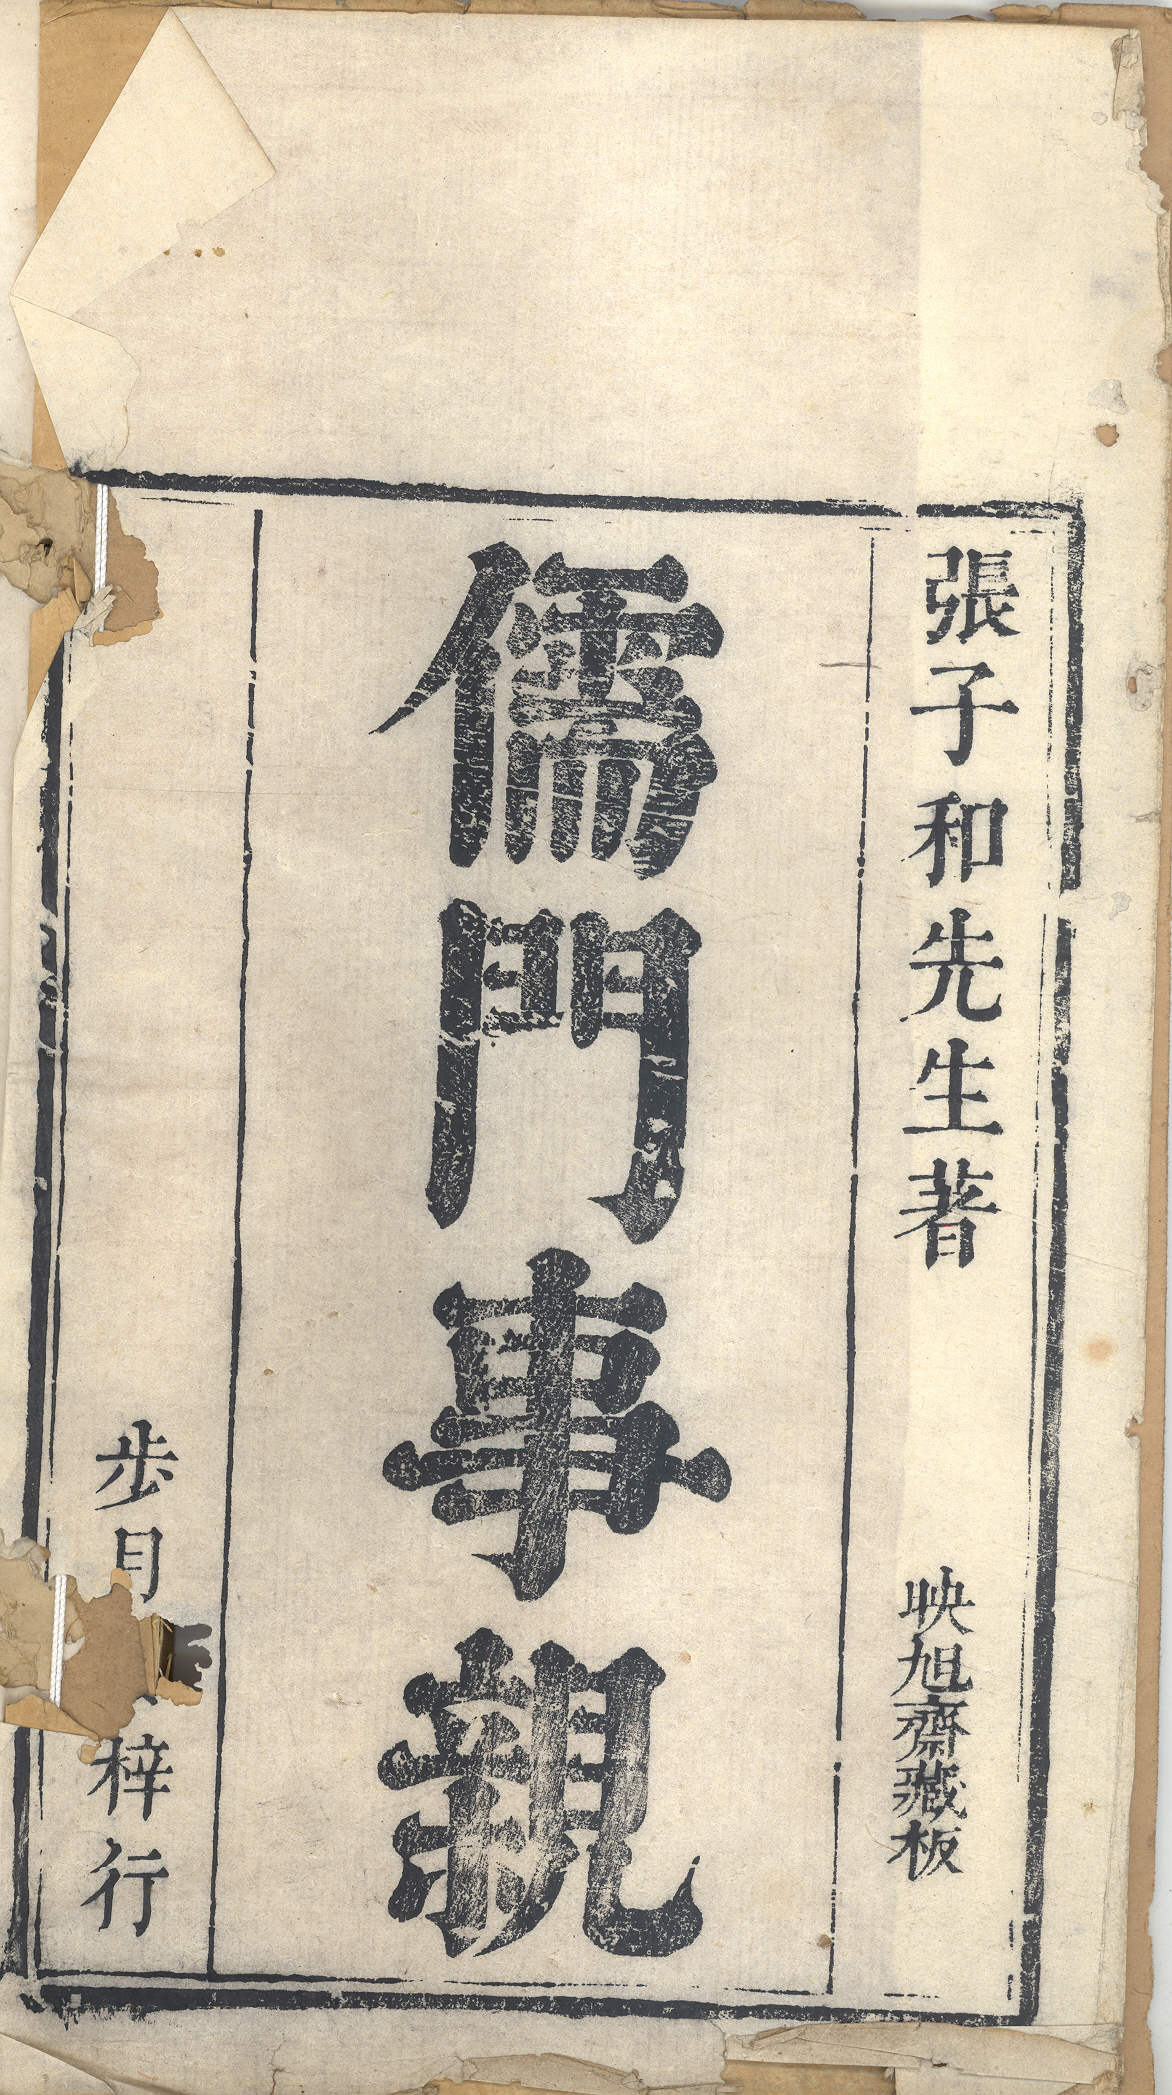 張子和先生著
映旭齋藏板
儒門事親
步月
梓行